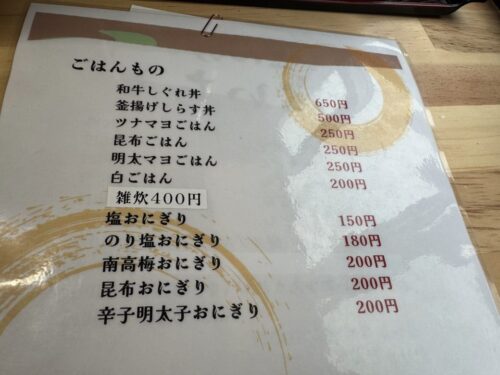 ごはんもの
和牛しぐれ丼 650円
釜揚げしらす丼 500円
ツナマヨごはん 250円
昆布ごはん 250円
明太マヨごはん 250円
白ごはん 200円
雑炊400円
塩おにぎり 150円
のり塩おにぎり 180円
南高梅おにぎり 200円
昆布おにぎり 200円
辛子明太子おにぎり 200円